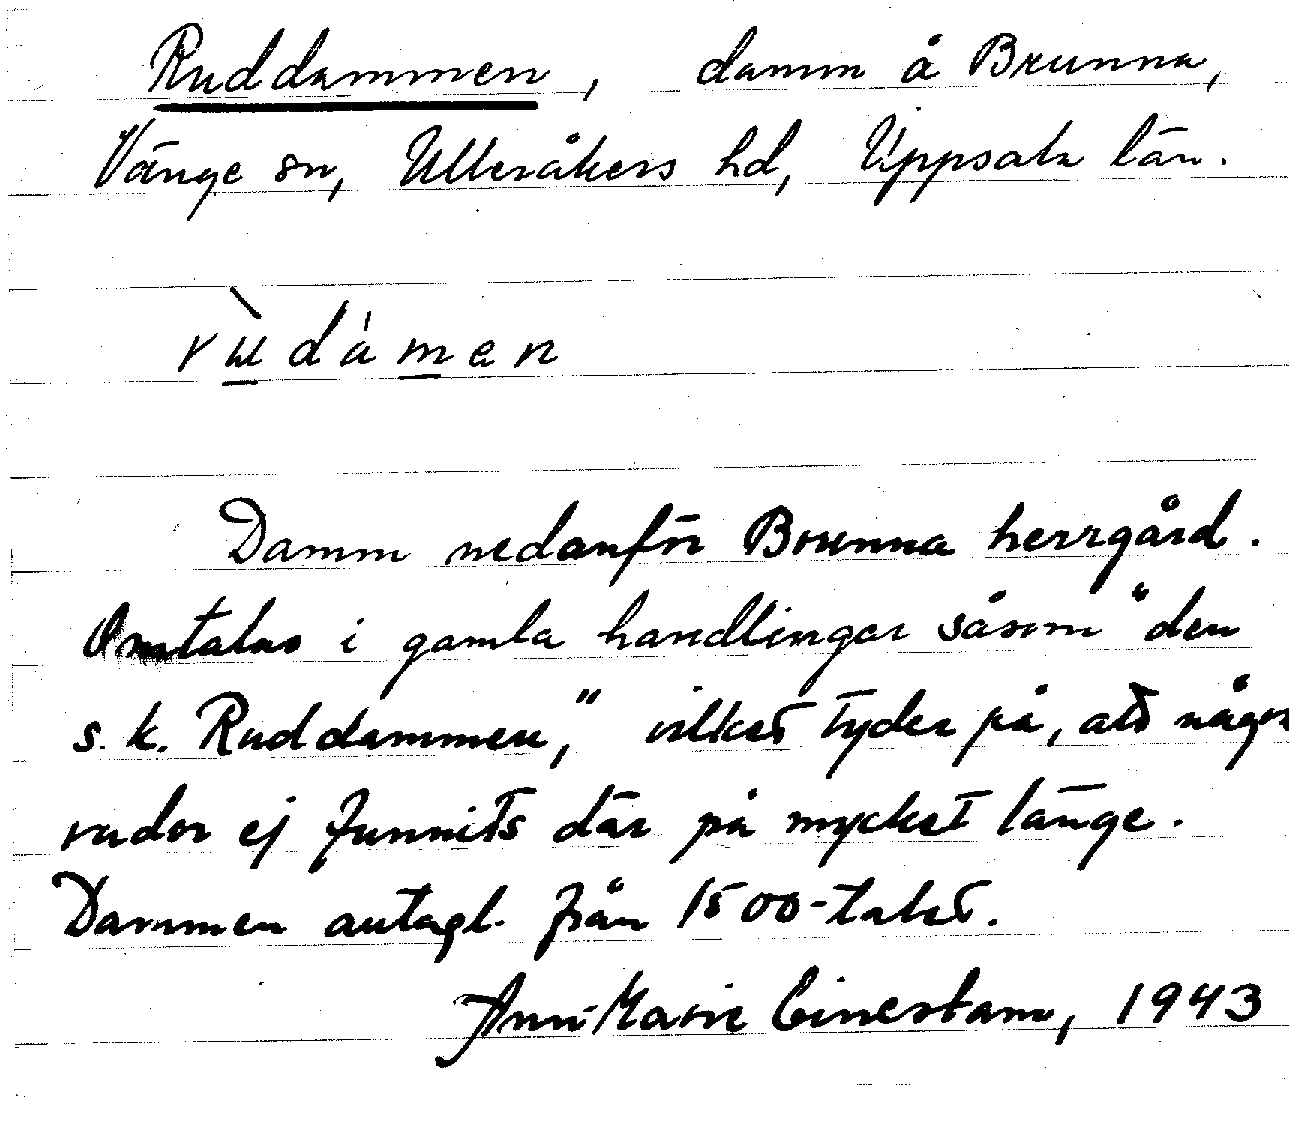 Ruddammen, damm å Brunna,
Vänge sn, Ulleråkers hd, Uppsala län.
rùdámen
Damm nedanför Brunna herrgård.
Omtalas i gamla handlingar såsom "den
s. k. Ruddammen," vilket tyder på, att några
rudor ej funnits där på mycket länge.
Dammen antagl. från 1500-talet.
Ann-Marie 1943